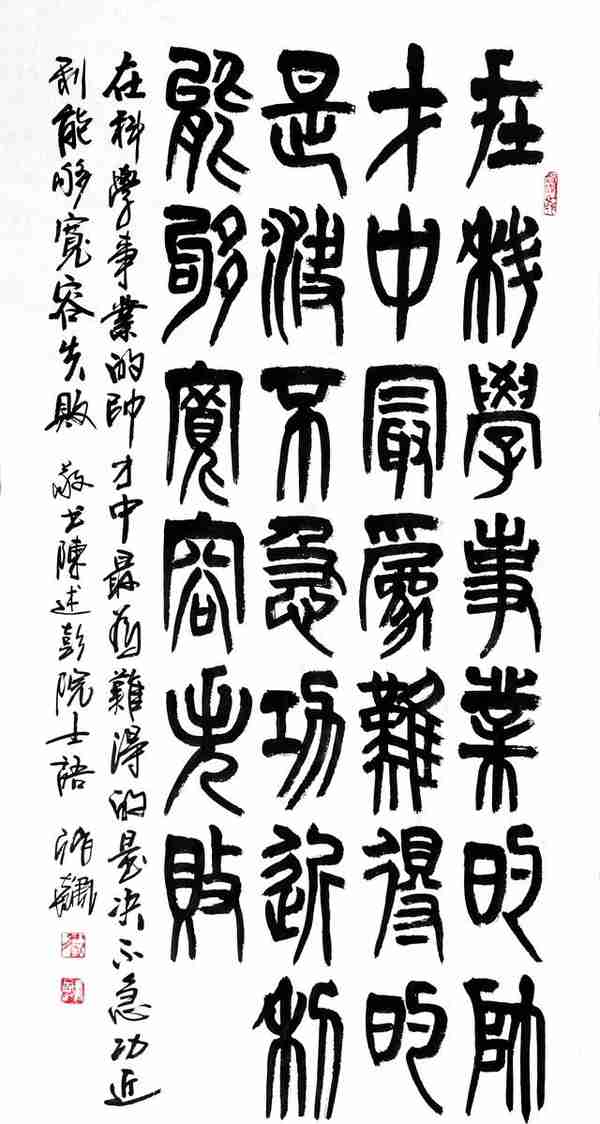 在科學事業的帥
才中最爲難得的
是決不急功近利
能夠寬容失敗
在科學事業的帥才中最為難得的是决不急功近
利能够寬容失敗 敬书陳述彭院士語